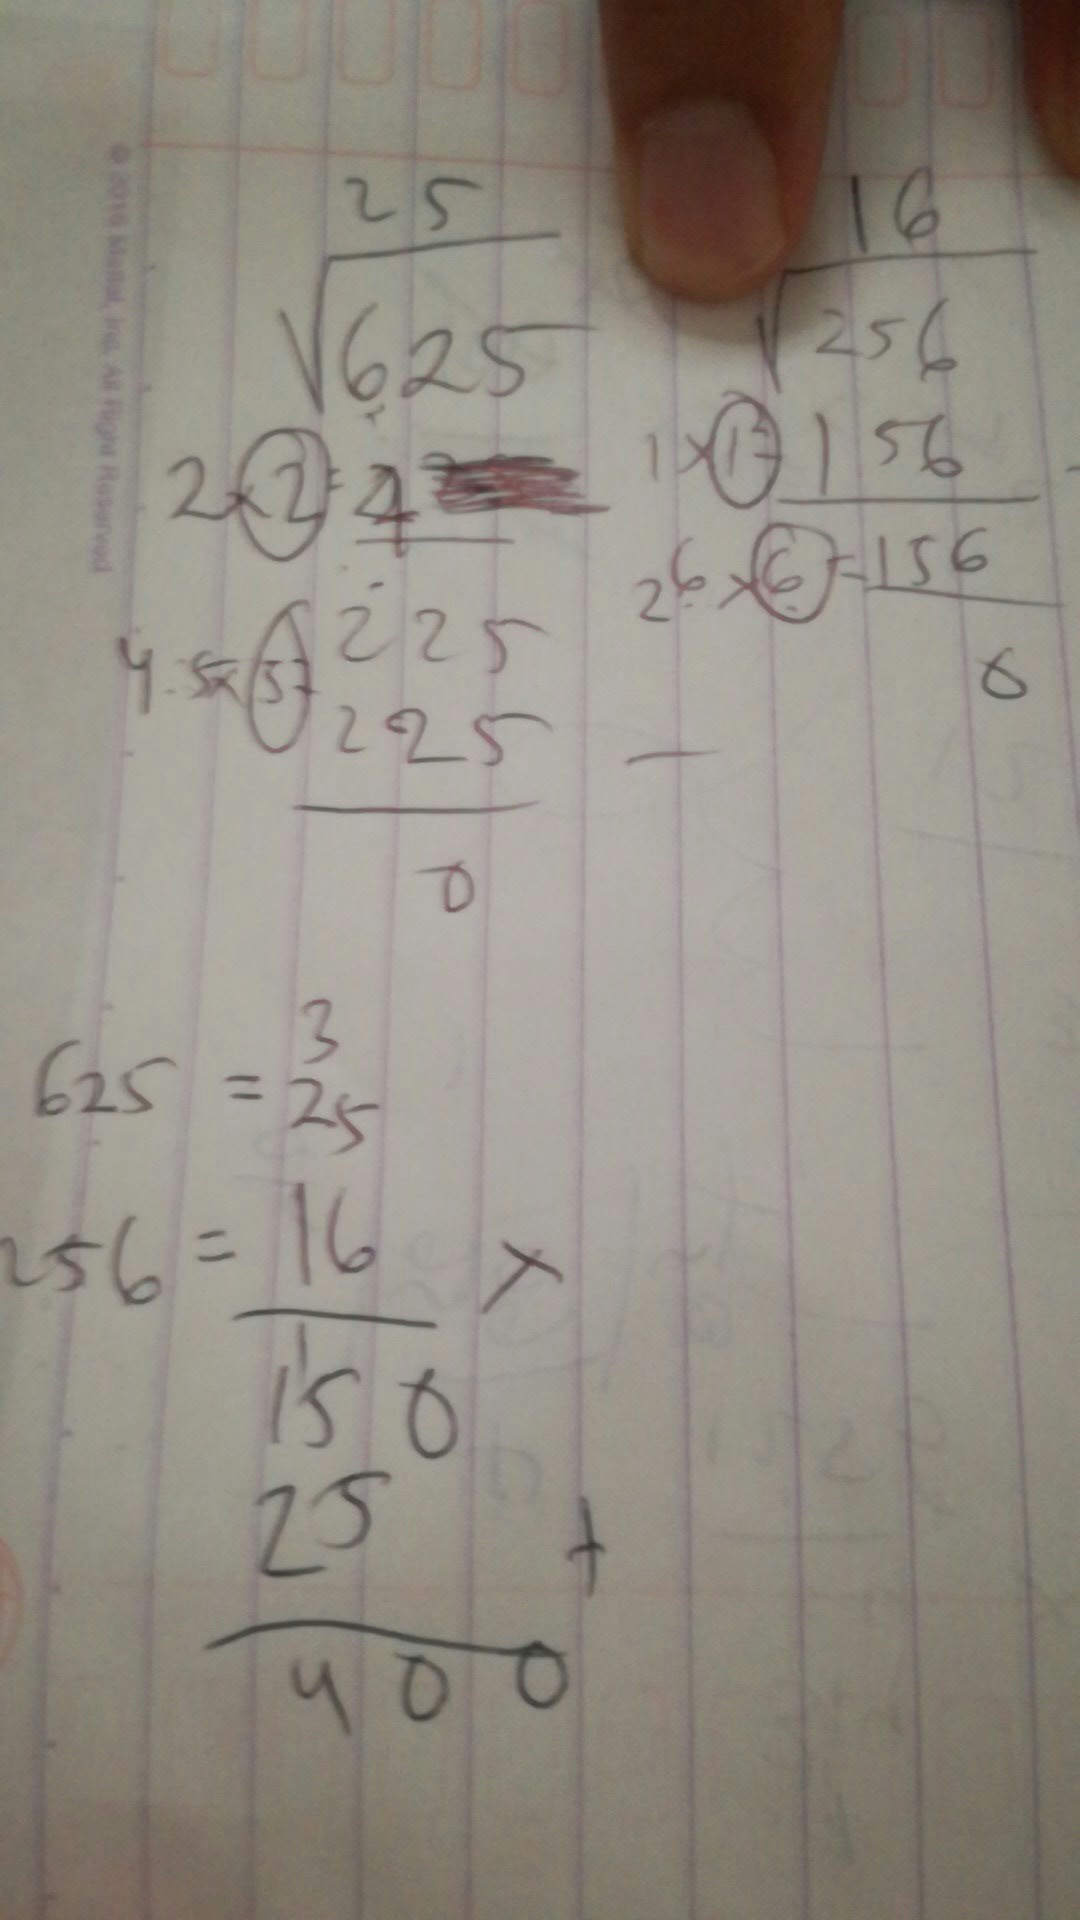 25
√625
2×2=4
225
4.5×5=
225 —
0
16
√256
1×1=1 56
26×6=156
0
625 = 25
3
256 = 16 ×
1
150
25 +
400
© 2016 Mattel, Inc. All Right Reserved